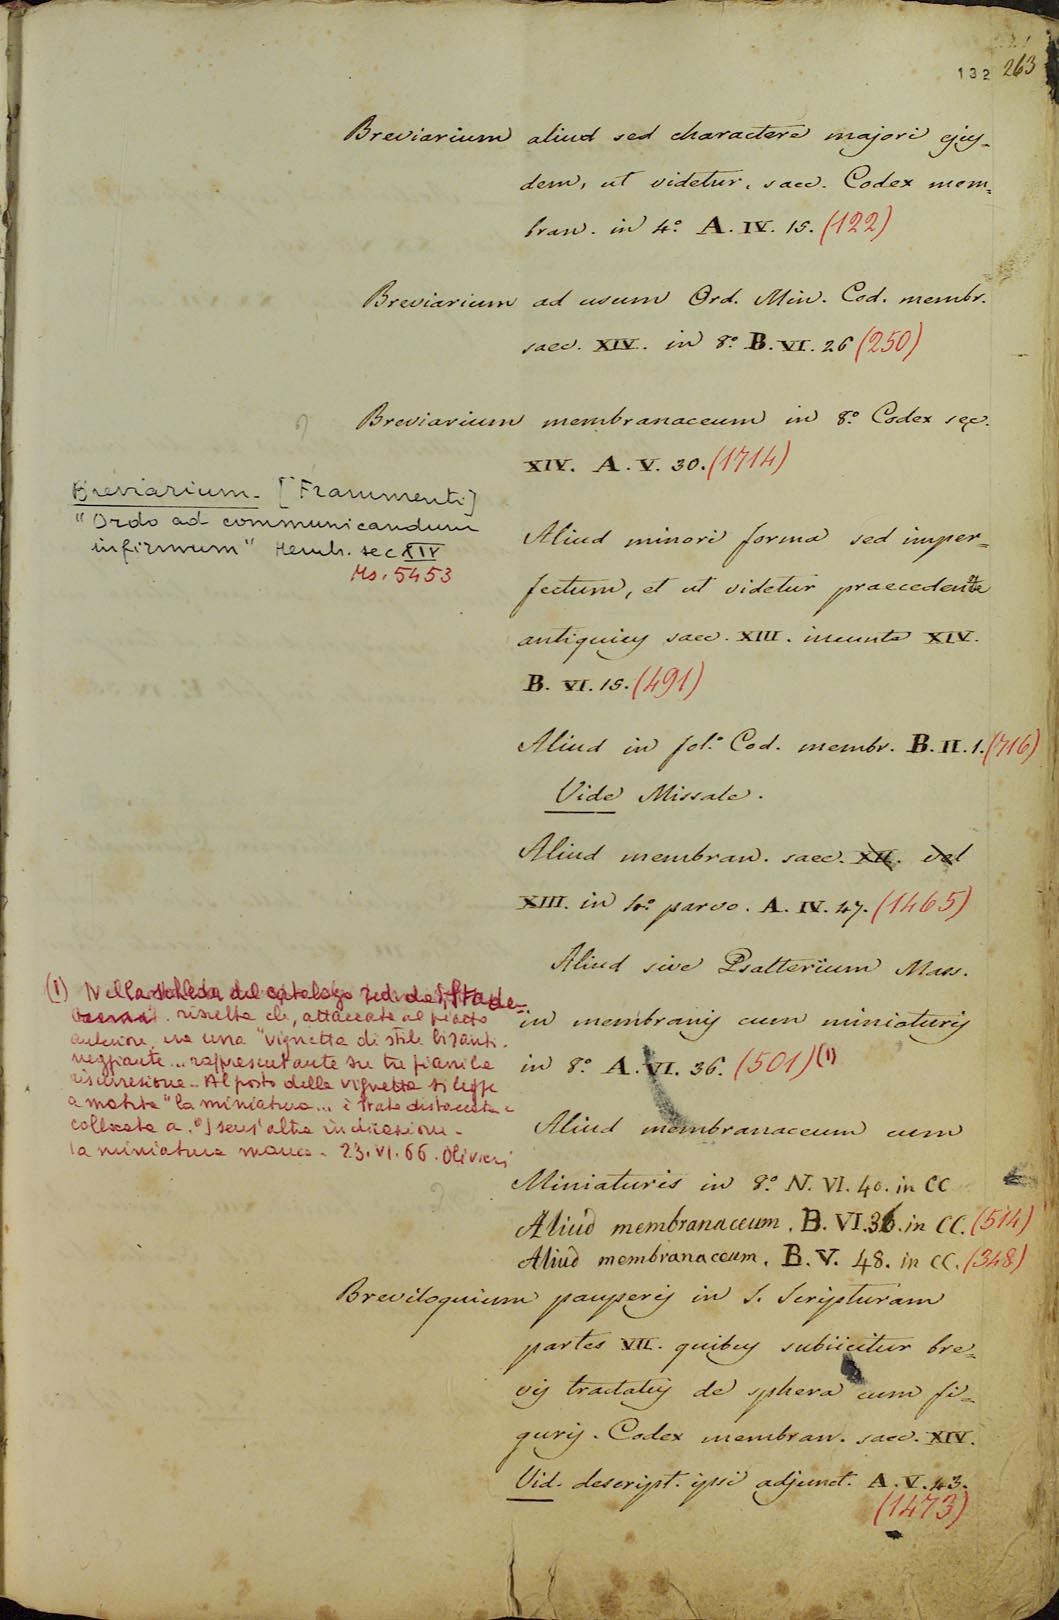 132 263
Breviarium aliud sed charactere majori ejus-
dem, ut videtur, saec. Codex mem-
bran. in 4.º A. IV. 15. (122)
Breviarium ad usum Ord. Min. Cod. membr.
saec. XIV. in 8.º B. VI. 26 (250)
Breviarium membranaceum in 8.º Codex sec.
XIV. A. V. 30. (1714)
Breviarium. [Frammenti]
"Ordo ad communicandum
infirmum" Memb. sec XIV
Ms. 5453
Aliud minori forma sed imper-
fectum, et ut videtur praecedente
antiquius saec. XIII. ineunte XIV.
B. VI. 15. (491)
Aliud in fol.º Cod. membr. B. II. 1. (716)
Vide Missale.
Aliud membran. saec. XII. vel
XIII. in 4.º parvo. A. IV. 47. (1465)
Aliud sive Psalterium Mass.
in membranis cum miniaturis
in 8.º A. VI. 36. (501) (1)
(1) Nella scheda del catalogo red. da
risulta che, attaccata al piatto
anteriore, era una "vignetta di stile bizanti-
neggiante... rappresentante su tre piani la
risurrezione. Al posto della vignetta si legge
a matita "la miniatura... è stata distaccata e
collocata a ." senz'altra indicazione.
la miniatura manca. 23.VI.66. Olivieri
Aliud membranaceum cum
Miniaturis in 8.º N. VI. 40. in CC
Aliud membranaceum. B. VI. 36. in CC. (514)
Aliud membranaceum. B. V. 48. in CC. (348)
Breviloquium pauperis in S. Scripturam
partes VII. quibus subiicitur bre-
vis tractatus de sphera cum fi-
guris. Codex membran. saec. XIV.
Vid. descript. ipsi adjunct. A. V. 43.
(1473)